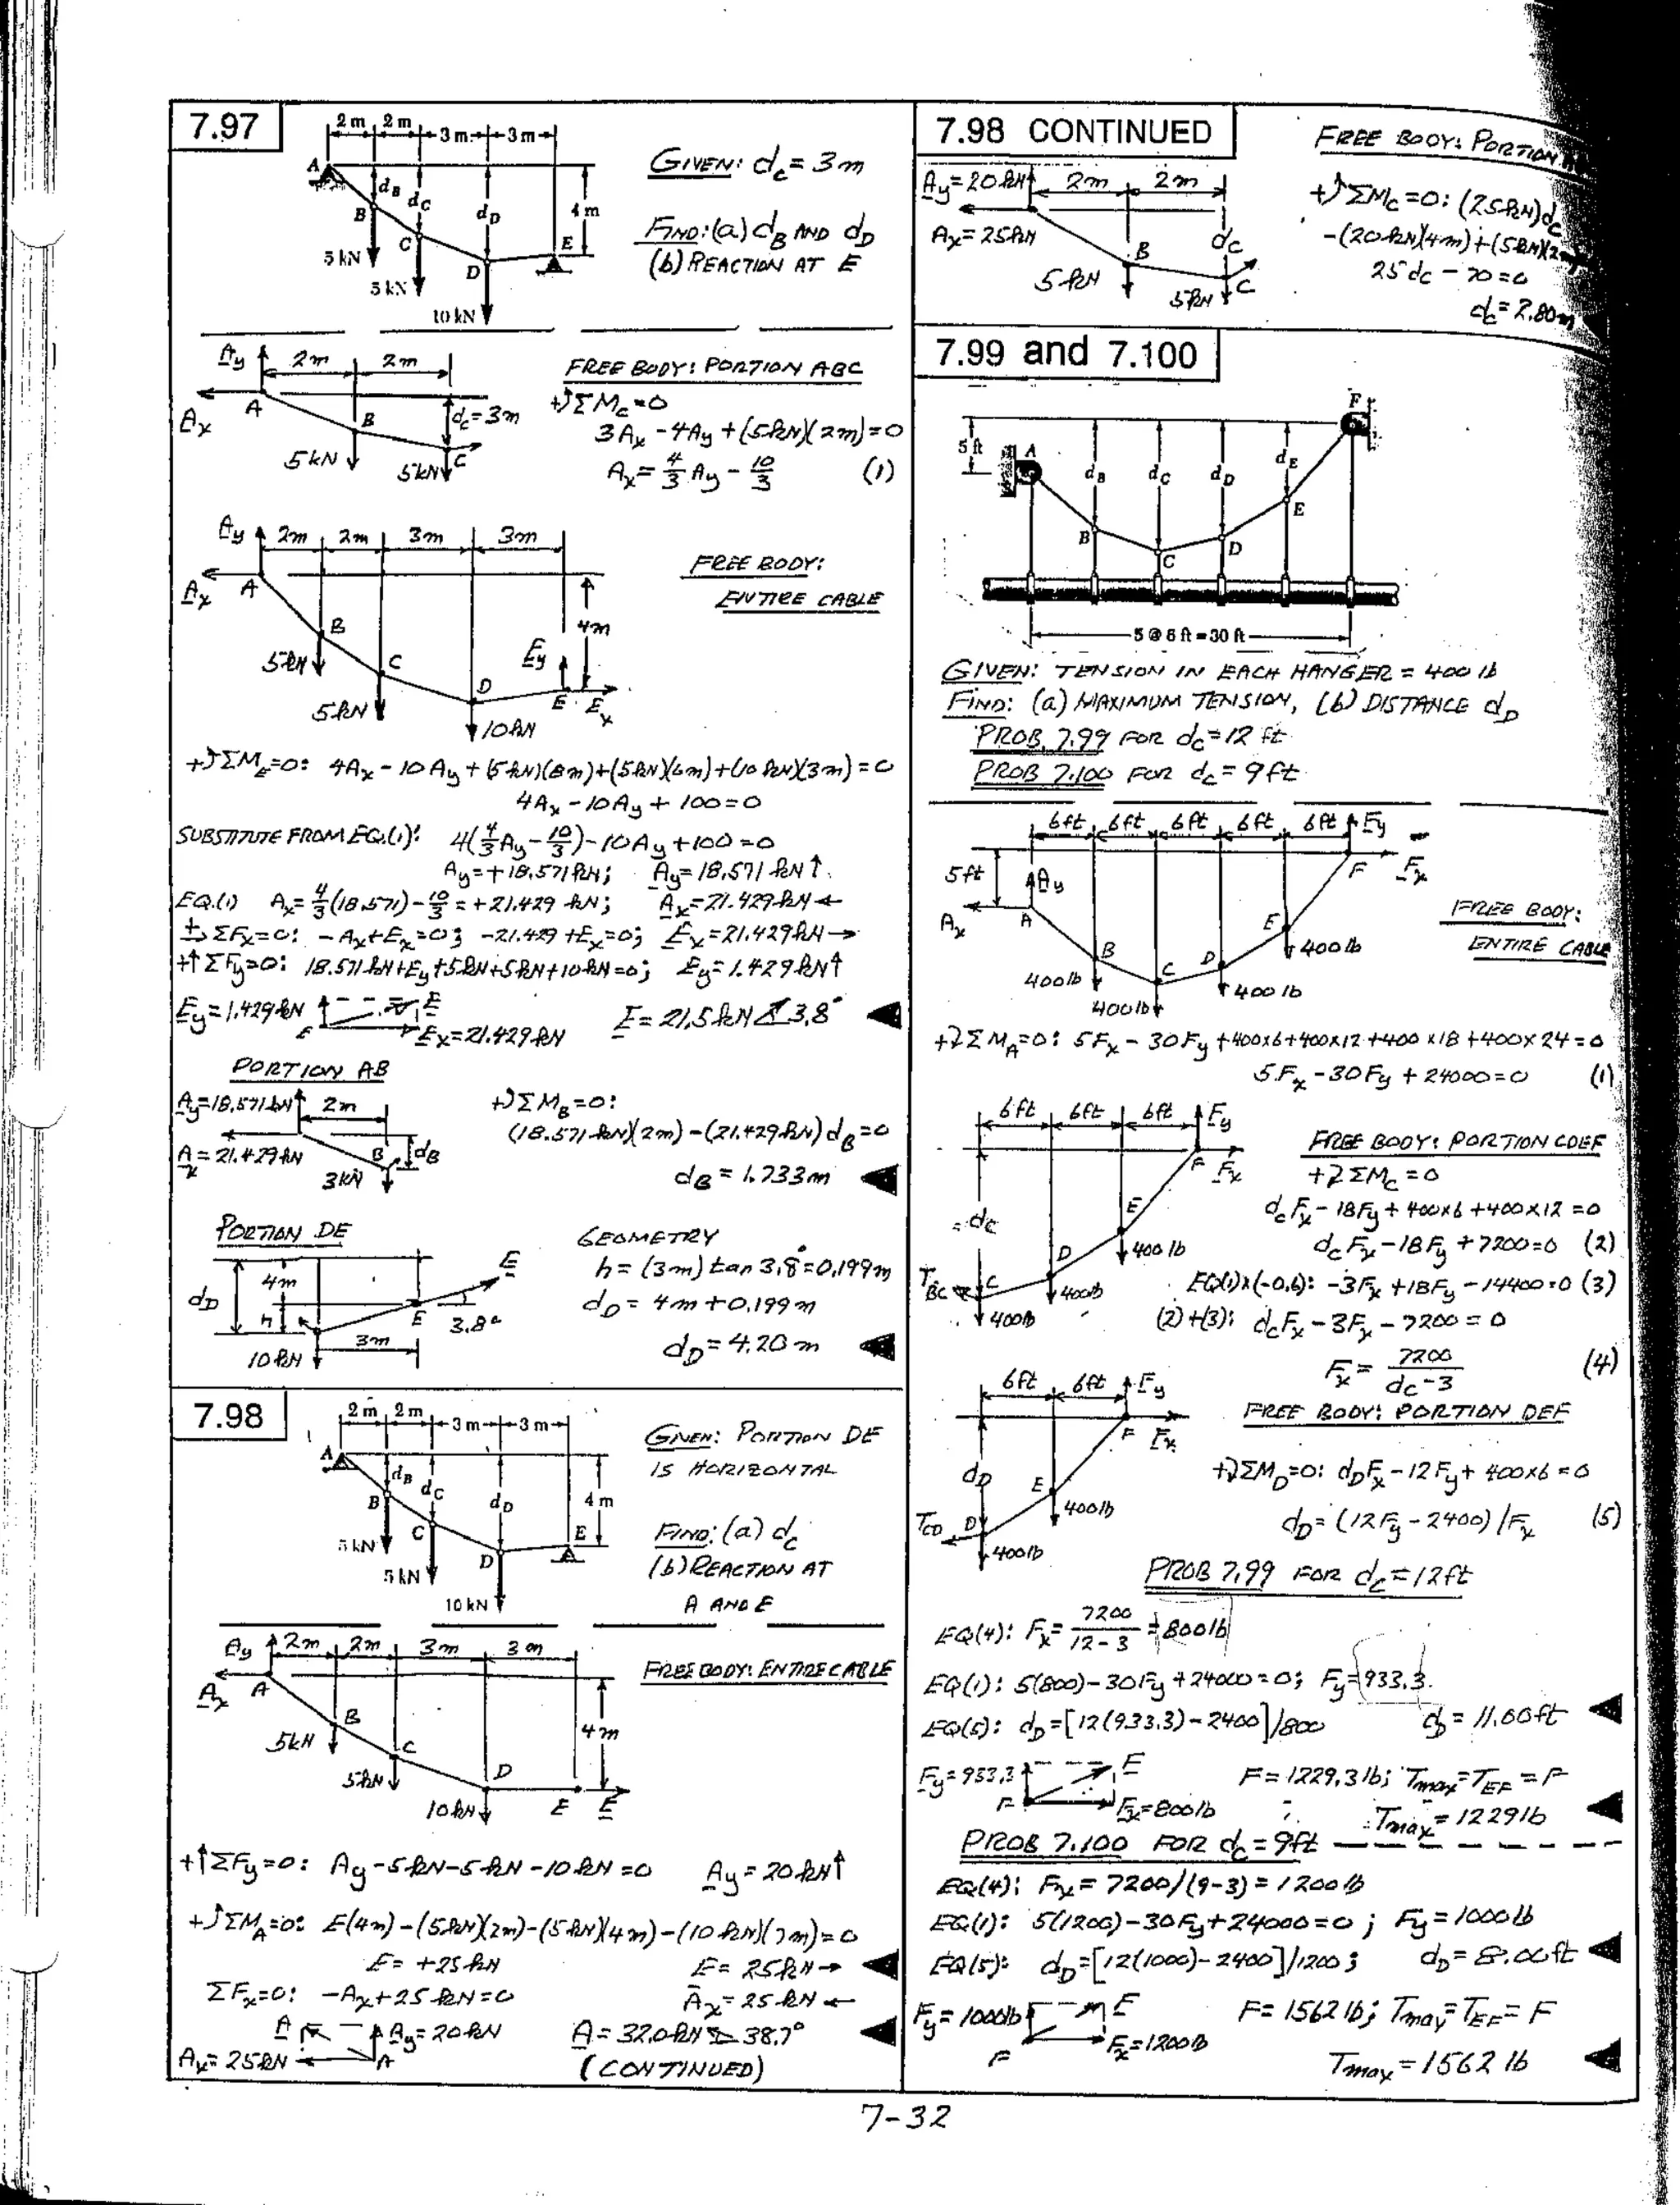 7.97
2 m 2 m 3 m 3 m
A
dB dC dD 4 m
B C D E
5 kN
5 kN
10 kN
GIVEN: dC = 3 m
FIND: (a) dB AND dD
(b) REACTION AT E
Ay 2m 2m
Ax A B dC = 3m
5 kN 5 kN C
FREE BODY: PORTION ABC
+↺ΣMC = 0
3Ax - 4Ay + (5kN)(2m) = 0
Ax = 4/3 Ay - 10/3 (1)
Ay 2m 2m 3m 3m
Ax A
B 4m
5kN C Ey
D E Ex
5kN
10kN
FREE BODY:
ENTIRE CABLE
+↺ΣME=0: 4Ax - 10Ay + (5kN)(8m)+(5kN)(6m)+(10kN)(3m) = 0
4Ax - 10Ay + 100 = 0
SUBSTITUTE FROM EQ.(1): 4(4/3 Ay - 10/3) - 10Ay + 100 = 0
Ay = +18.571kN; Ay = 18.571 kN↑.
EQ.(1) Ax = 4/3(18.571) - 10/3 = +21.429 kN; Ax = 21.429kN ←
+→ΣFx=0: -Ax+Ex=0; -21.429 +Ex=0; Ex = 21.429kN →
+↑ΣFy=0: 18.571kN+Ey+5kN+5kN+10kN=0; Ey = 1.429kN↑
Ey = 1.429kN E
E Ex=21.429kN
E = 21.5kN ∡3.8° ◄
PORTION AB
Ay=18.571kN↑ 2m
Ax = 21.429kN B dB
3kN
+↺ΣMB=0:
(18.571kN)(2m) - (21.429kN)dB = 0
dB = 1.733m ◄
PORTION DE
dD 4m E
h E 3.8°
3m
10kN
GEOMETRY
h = (3m) tan 3.8° = 0.199m
dD = 4m + 0.199m
dD = 4.20 m ◄
7.98
2 m 2 m 3 m 3 m
A
dB dC dD 4 m
B C D E
5 kN
5 kN
10 kN
GIVEN: PORTION DE
IS HORIZONTAL
FIND: (a) dC
(b) REACTION AT
A AND E
Ay 2m 2m 3m 3m
Ax A
B 4m
5kN C
5kN D
10kN E E
FREE BODY: ENTIRE CABLE
+↑ΣFy=0: Ay - 5kN - 5kN - 10kN = 0 Ay = 20kN↑
+↺ΣMA=0: E(4m) - (5kN)(2m) - (5kN)(4m) - (10kN)(7m) = 0
E = +25kN E = 25kN → ◄
ΣFx=0: -Ax+25kN = 0 Ax = 25kN ←
A Ay = 20kN
Ax = 25kN A
A = 32.0kN ⦩ 38.7° ◄
(CONTINUED)
7.98 CONTINUED
Ay=20kN↑ 2m 2m
Ax = 25kN dC
B
5kN 5kN C
FREE BODY: PORTION
+↺ΣMC=0: (25kN)dC
-(20kN)(4m)+(5kN)(2m)
25dC - 70 = 0
dC = 2.80m ◄
7.99 and 7.100
F
5 ft A
dB dC dD dE
B C D E
5 @ 6 ft = 30 ft
GIVEN: TENSION IN EACH HANGER = 400 lb
FIND: (a) MAXIMUM TENSION, (b) DISTANCE dD
PROB. 7.99 FOR dC = 12 ft
PROB 7.100 FOR dC = 9 ft
6ft 6ft 6ft 6ft 6ft Fy
5ft Ay F Fx
Ax A
B C D E
400lb
400lb
400lb
400lb
FREE BODY:
ENTIRE CABLE
+↻ΣMA=0: 5Fx - 30Fy +400x6+400x12+400x18+400x24=0
5Fx - 30Fy + 24000 = 0 (1)
6ft 6ft 6ft Fy
F Fx
dC
E
D 400lb
TBC C 400lb
400lb
FREE BODY: PORTION CDEF
+↻ΣMC = 0
dCFx - 18Fy + 400x6 +400x12 = 0
dCFx - 18Fy + 7200 = 0 (2)
EQ(1)x(-0.6): -3Fx +18Fy - 14400 = 0 (3)
(2)+(3): dCFx - 3Fx - 7200 = 0
Fx = 7200/(dC-3) (4)
6ft 6ft Fy
F Fx
dD E
400lb
TCD D
400lb
FREE BODY: PORTION DEF
+↻ΣMD=0: dDFx - 12Fy + 400x6 = 0
dD = (12Fy - 2400)/Fx (5)
PROB 7.99 FOR dC = 12ft
EQ(4): Fx = 7200/(12-3) = 800lb
EQ(1): 5(800) - 30Fy + 24000 = 0; Fy = 933.3.
EQ(5): dD = [12(933.3) - 2400]/800 dD = 11.00ft ◄
Fy = 933.3 F
F Fx=800lb
F = 1229.3lb; Tmax = TEF = F
Tmax = 1229lb ◄
PROB 7.100 FOR dC = 9ft
EQ(4): Fx = 7200/(9-3) = 1200lb
EQ(1): 5(1200) - 30Fy + 24000 = 0; Fy = 1000lb
EQ(5): dD = [12(1000) - 2400]/1200; dD = 8.00ft ◄
Fy = 1000lb F
F Fx=1200lb
F = 1562lb; Tmax = TEF = F
Tmax = 1562 lb ◄
7-32